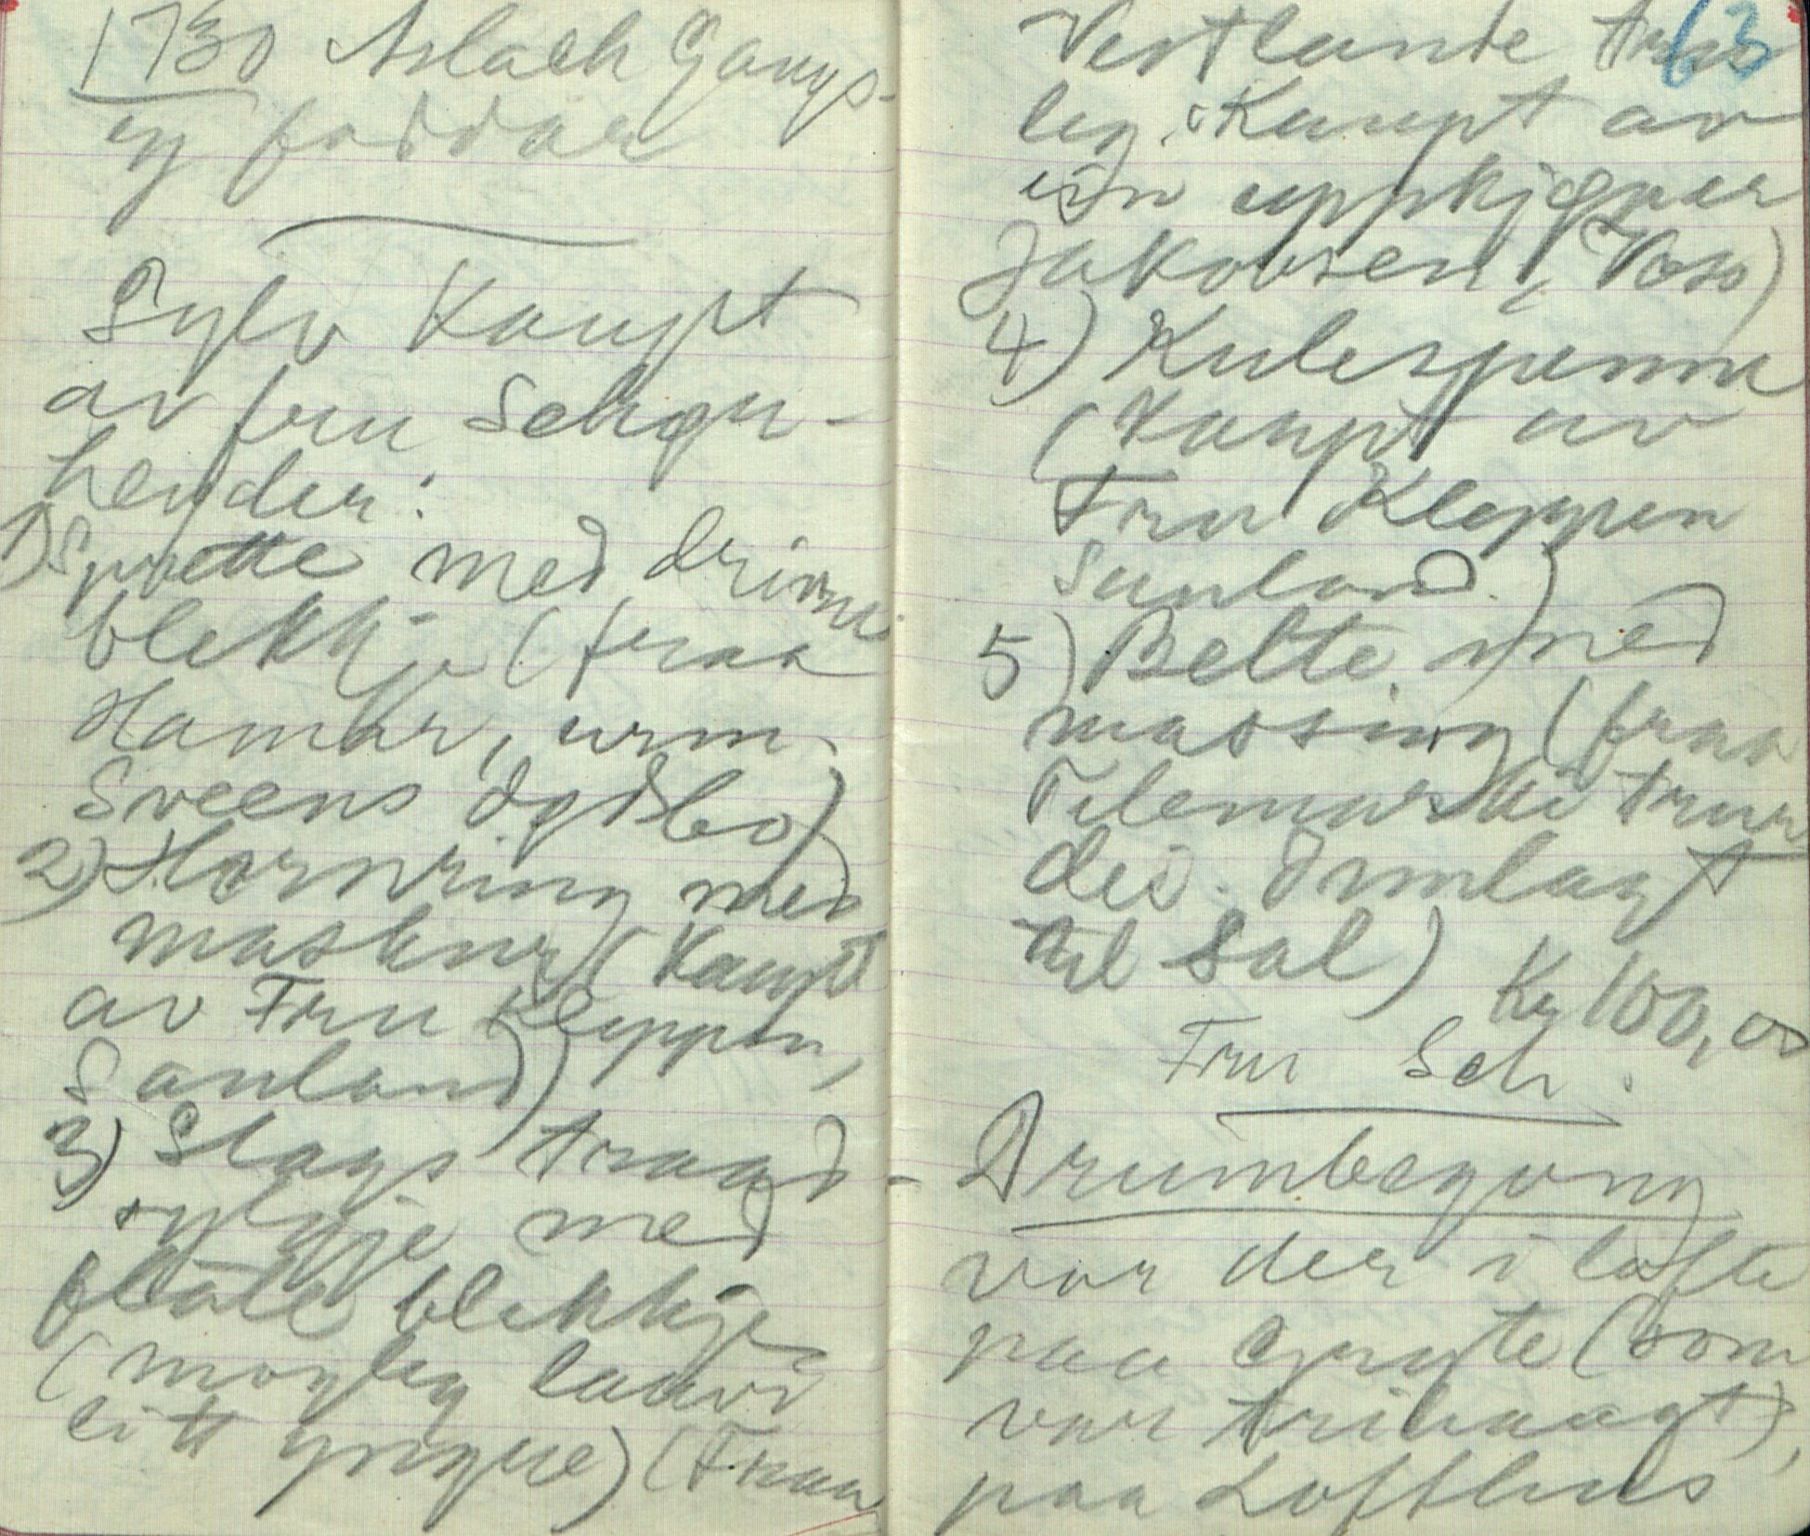 1730 Aslack Gaugs-
og foddar
Sylv Kaupt
av fru Schøn-
heyder:
1) Sprette med drivne
blekkje (fraa
Hamar, urm.
Sveens dødsbo)
2) Hornring med
maskur (Kaupt
av Fru Kleppen,
Sauland)
3) Slags traad-
sylgje med
flate blekkje
(mogleg
eitt yngre) (Fraa
63
Vestlande tru-
leg. Kaupt av
ein uppkjøper
Jakobsen, Voss)
4) Kulespenne
(Kaupt av
Fru Kleppen
Sauland.)
5) Belte med
massing (fraa
Telemarki trur
dei. Innlagt
til Sal)
Kr 100,00
Fru Sch.
Drumbegong
var der i lofte
paa (som
var trihaagt),
paa Lofthus